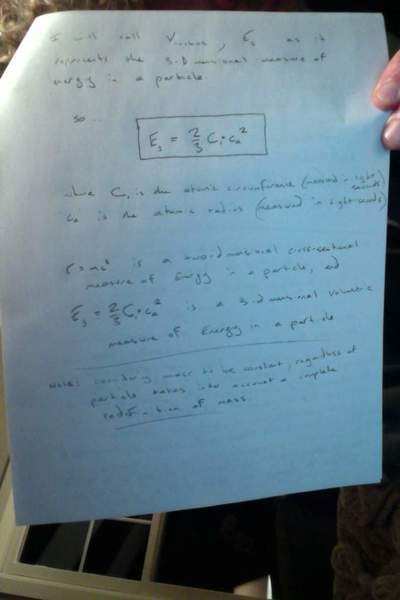 I will call V , E₃ as it
represents the 3-Dimensional measure of
energy in a particle.
so...
E₃ = 2/3 C₁·c₂²
where C₁ is the atomic circumference (measured in light seconds)
c₂ is the atomic radius (measured in light-seconds)
E=mc² is a two-dimensional cross-sectional
measure of Energy in a particle, and
E₃ = 2/3 C₁·c₂² is a 3-dimensional volumetric
measure of Energy in a particle
Note: considering mass to be constant, regardless of
particle takes into account a complete
redefinition of mass.